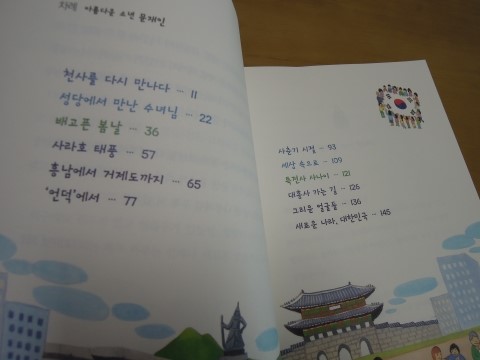 차례 아름다운 소년 문재인
천사를 다시 만나다 - 11
성당에서 만난 수녀님 - 22
배고픈 봄날 - 36
사라호 태풍 - 57
흥남에서 거제도까지 - 65
'언덕'에서 - 77
사춘기 시절 - 93
세상 속으로 - 109
특전사 사나이 - 121
대흥사 가는 길 - 126
그리운 얼굴들 - 136
새로운 나라, 대한민국 - 145